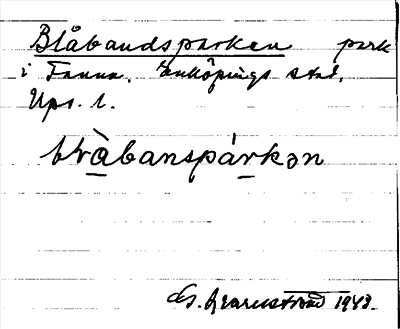 Blåbandsparken park
i Fanna, Enköpings stad,
Upps. l.
blå̀banspárkən
1943.